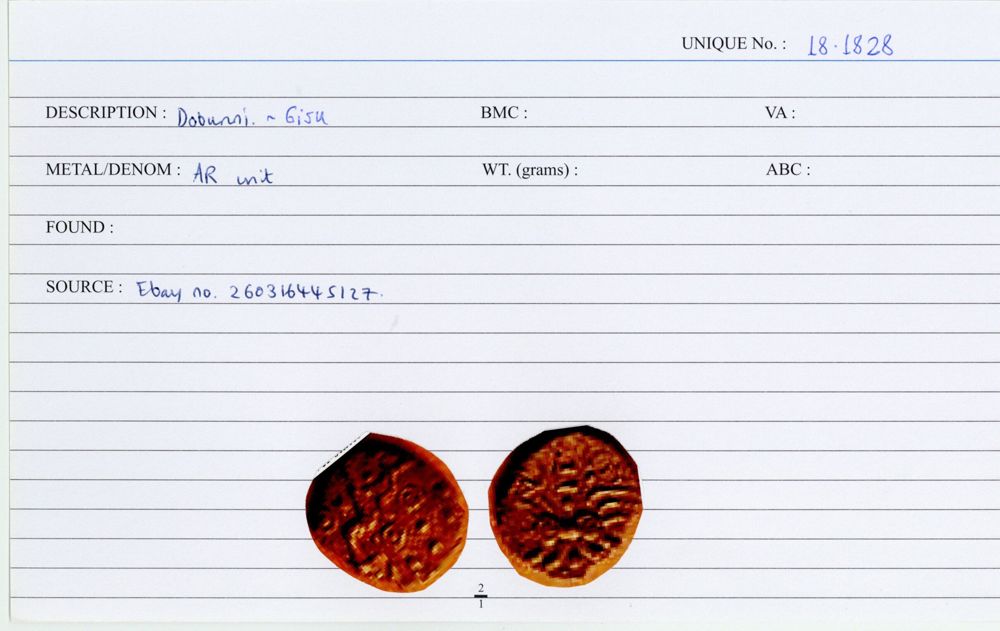 UNIQUE No. : 18.1828
DESCRIPTION : Dobunni. ~ Gisu BMC : VA :
METAL/DENOM : AR unit WT. (grams) : ABC :
FOUND :
SOURCE : Ebay no. 260316445127.
2
1